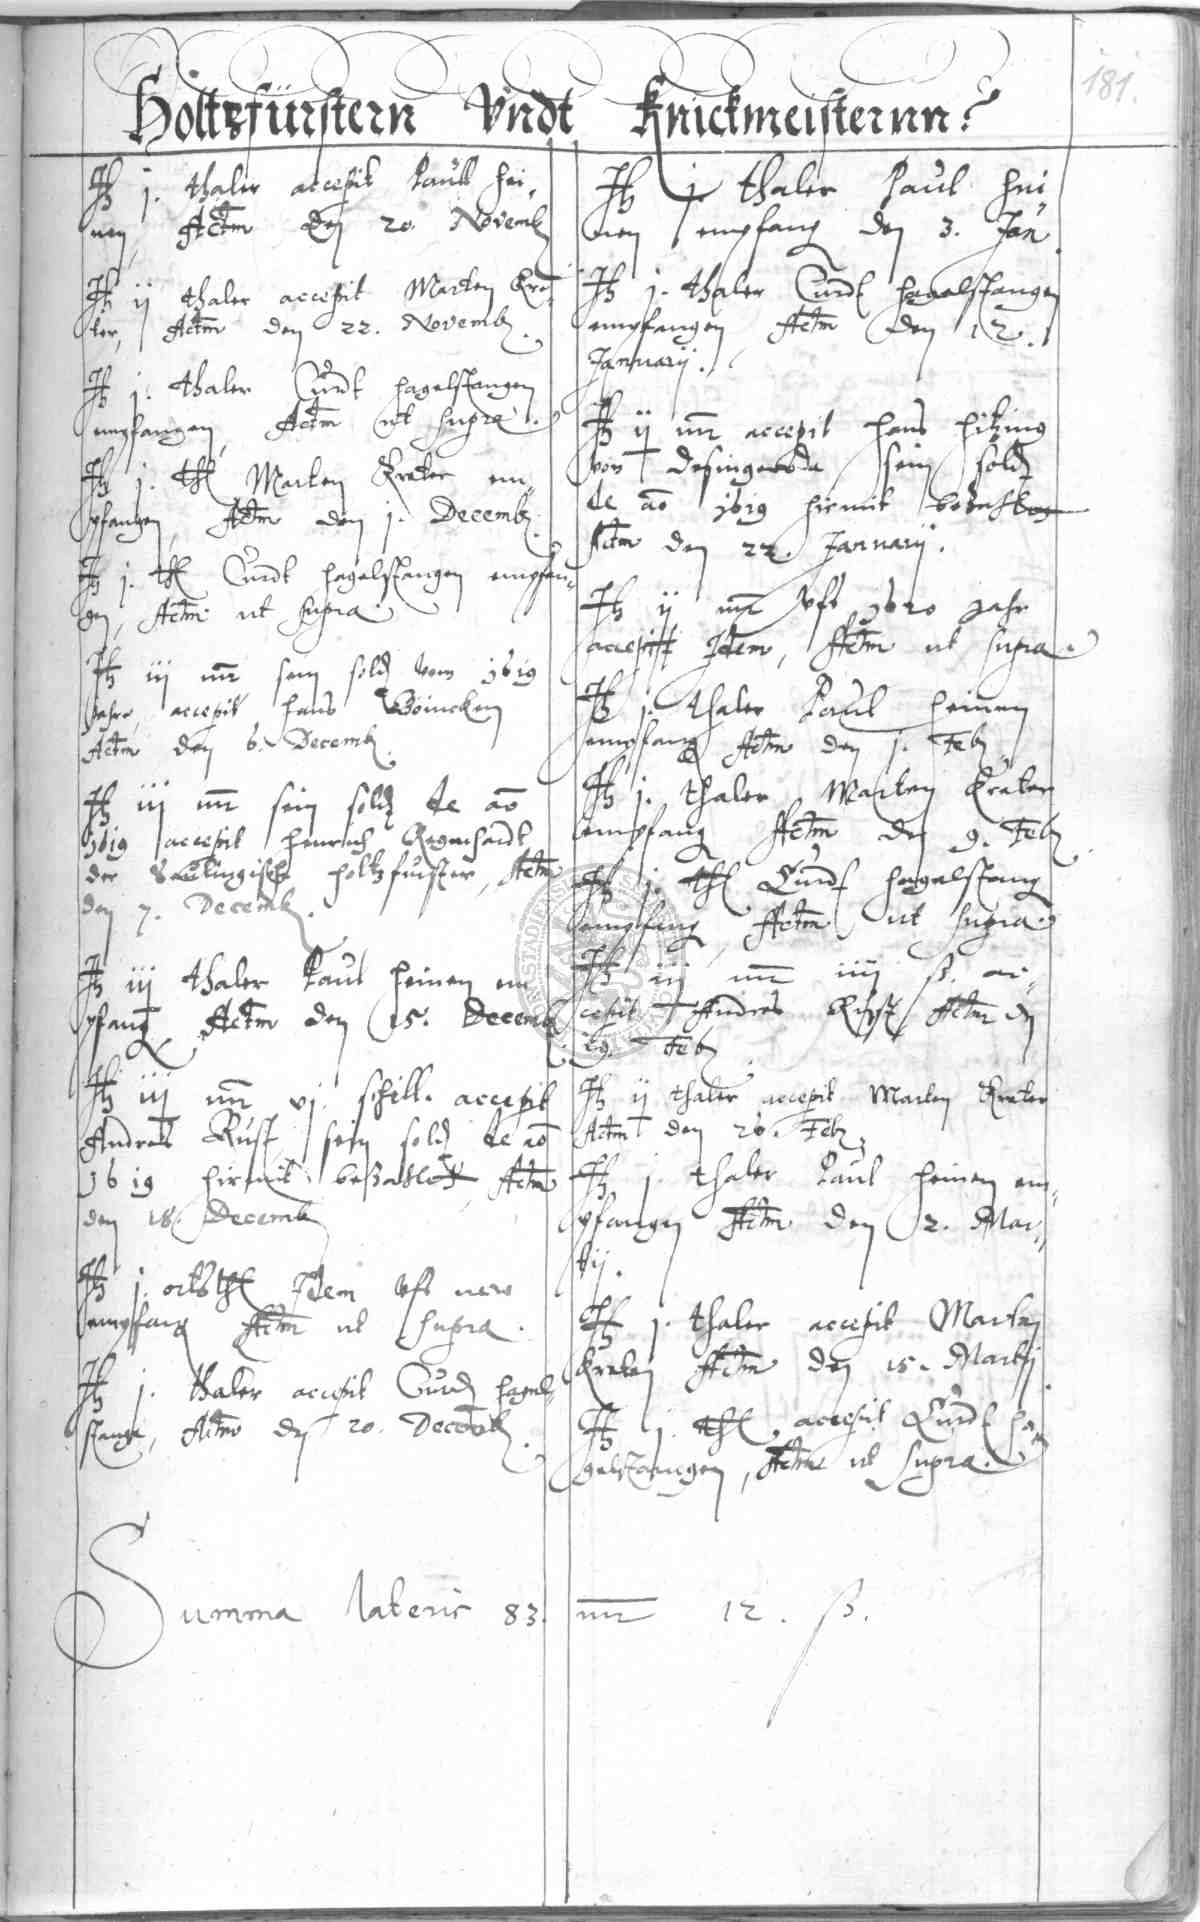 181.
Holtzfürstern Vndt Knickmeisternn
It j. thaler accepit Paull Hei-
nen, Actm den 20. Novemb
It ij thaler accepit Marten Kre-
ter, Actm den 22. Novemb.
It j. thaler Curdt Hagelstangen
empfangen, Actm ut supra.
It j. thl Marten Kreter em-
pfangen, Actm den 1. Decemb.
It j. thl Curdt Hagelstangen empfan-
gen, Actm ut supra
It iij mr sein soldt vom 1619
Jahre, accepit Hans Boincken
Actm den 6. Decemb
It iij mr sein soldt de ao
1619 accepit Henrich Regenhardt
der holtzfurster, Actm
den 7. Decemb.
It iij thaler Paul Heinen em
pfang Actm den 15. Decemb
It iij mr vj. schill. accepit
Andres Rust sein soldt de ao
1619 hirmit bezahlet, Actm
den 18. Decemb
It j. ortsthl Idem vfs new
empfang Actm ut supra.
It j. thaler accepit Curdt Hagel-
stange, Actm den 20. Decemb.
It j. thaler Paul Hei
nen empfang den 3. Jan.
It j. thaler Curdt Hagelstangen
empfangen, Actm den 12.
Januarij.
It ij mr accepit Hans Hitzing
von Desingeroda sein soldt
de ao 1619 hirmit
Actm den 22. Januarij.
It ij mr vfs 1620 Jahr
accepit Idem, Actm ut supra.
It j. thaler Paul Heinen
empfang Actm den 1. Feb
It j. thaler Marten Kreter
empfang Actm den 9. Feb
It j. thl Curdt Hagelstang
empfang Actm ut supra.
It iij mr iiij ß. ac-
cepit Andres Rust Actm den
19. Feb
It ij thaler accepit Marten Kreter
Actm den 20. Feb
It j. thaler Paul Heinen em-
pfangen Actm den 2. Mar-
tij.
It j. thaler accepit Marten
Kreter Actm den 15. Martij.
It j. thl accepit Curdt Ha-
gelstangen, Actm ut supra.
Summa lateris 83. mr 12. ß.